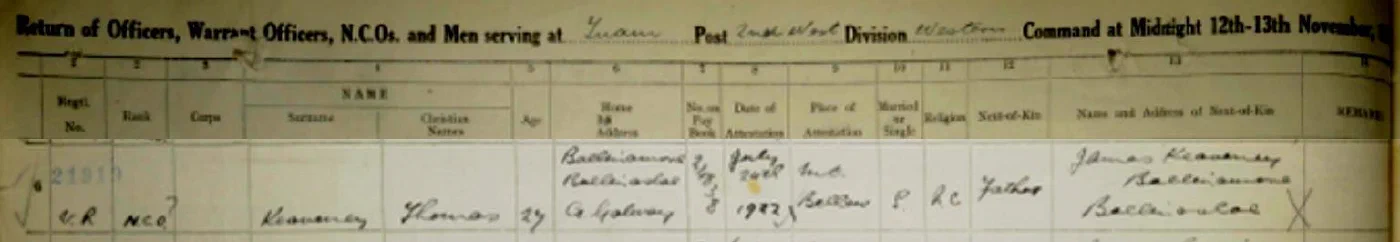 Return of Officers, Warrant Officers, N.C.Os. and Men serving at Tuam Post 2nd West Division Western Command at Midnight 12th-13th November,
1 2 3 4 5 6 7 8 9 10 11 12 13
Regtl. No. Rank Corps NAME Surname Christian Names Age Home Address No. on Pay Book Date of Attestation Place of Attestation Married or Single Religion Next-of-Kin Name and Address of Next-of-Kin REMARKS
6 21919 Ballinamore July James Keaveney
Ballinasloe 24th Ballinamore
V.R N.C.O? Keaveney Thomas 27 Co Galway 8 1922 S. R.C Father Ballinasloe X